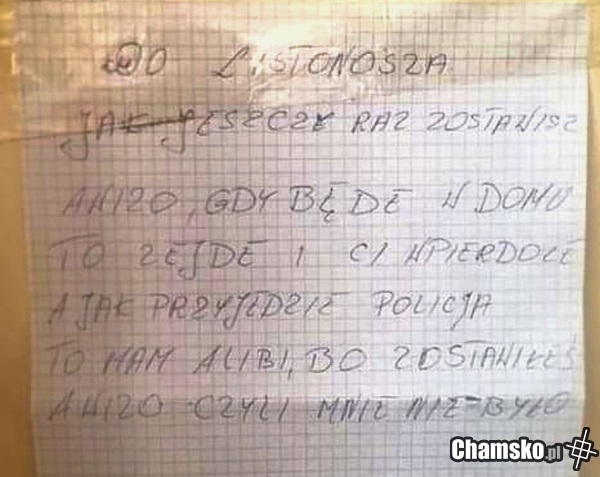 DO LISTONOSZA
JAK JESZCZE RAZ ZOSTAWISZ
AWIZO, GDY BĘDE W DOMU
TO ZEJDE I CI WPIERDOLE
A JAK PRZYJEDZIE POLICJA
TO MAM ALIBI, BO ZOSTAWIŁEŚ
AWIZO CZYLI MNIE NIE BYŁO
Chamsko.pl